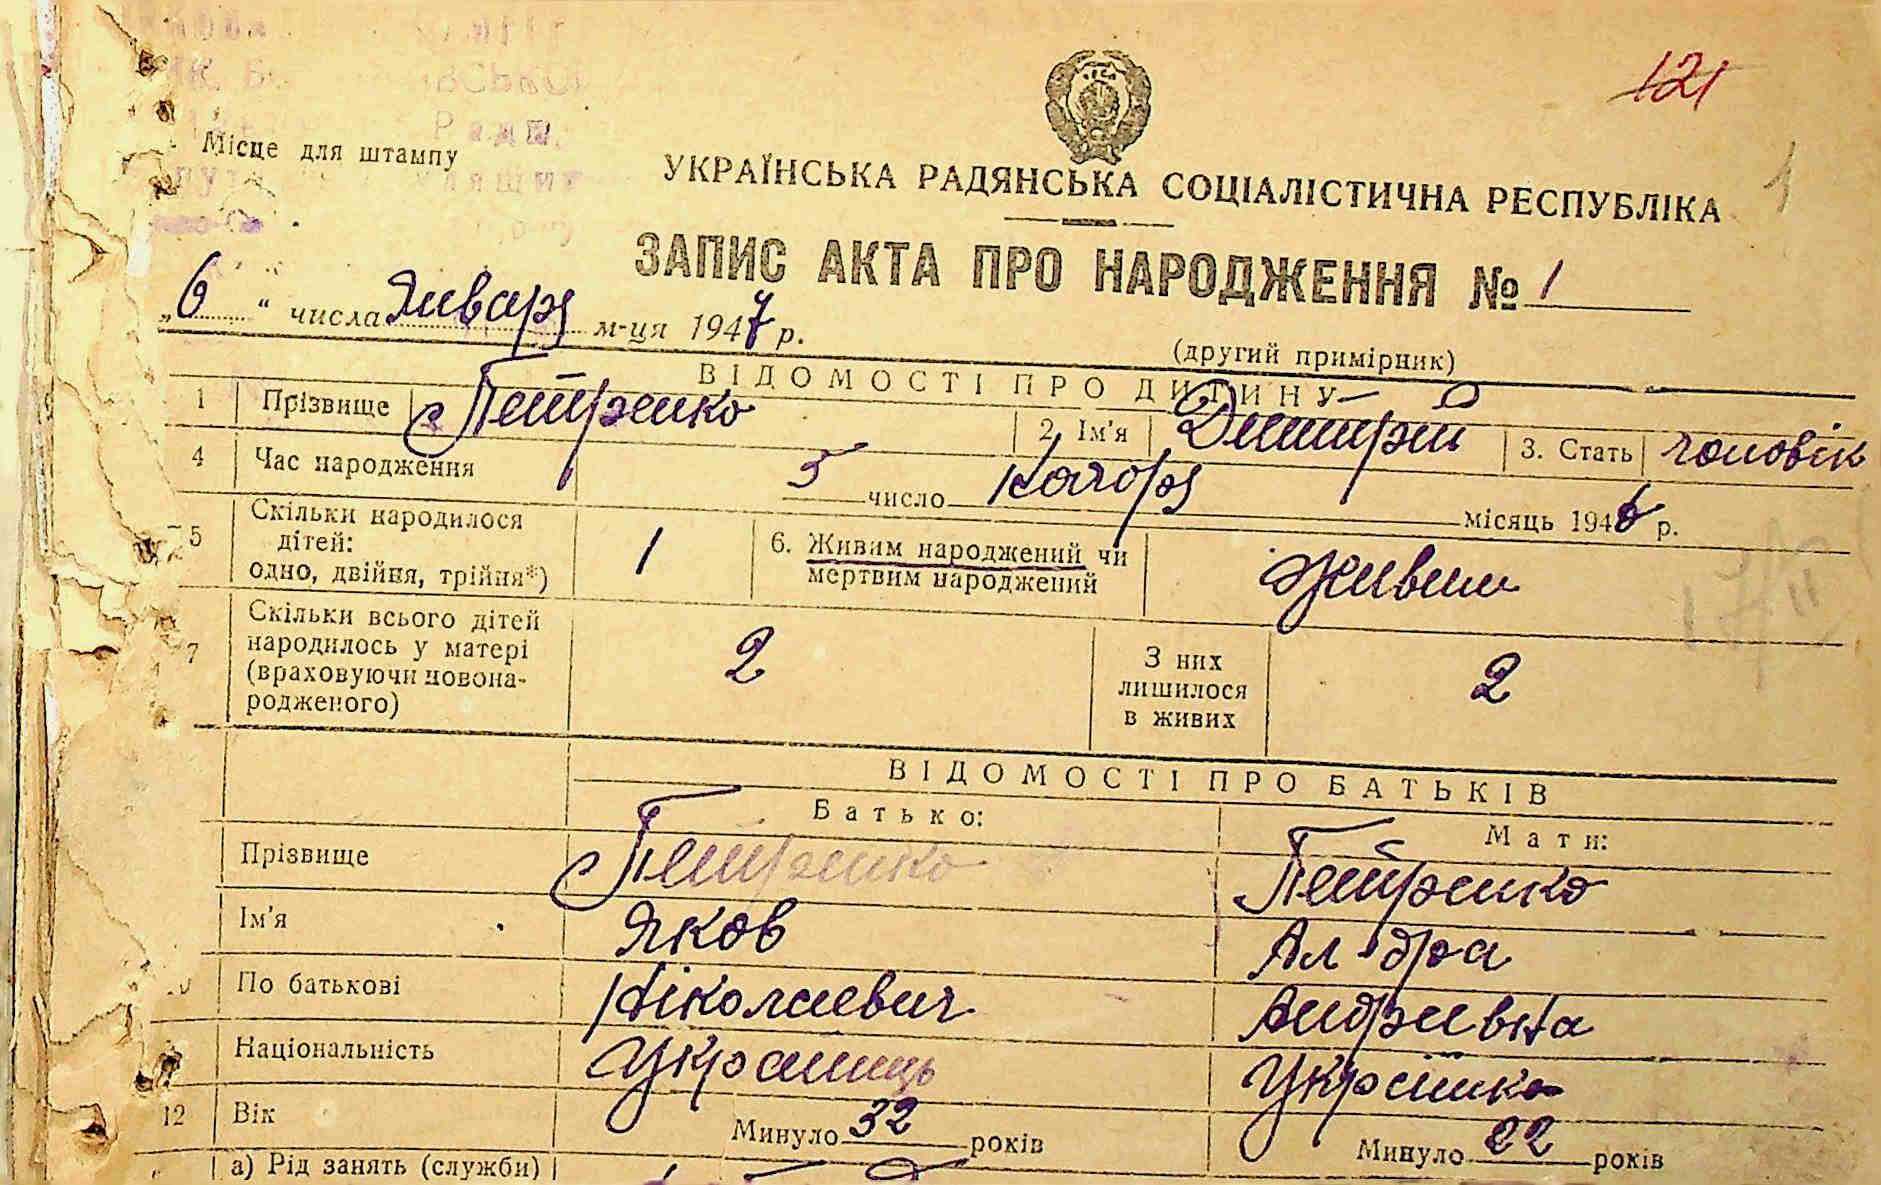 121
Місце для штампу
УКРАЇНСЬКА РАДЯНСЬКА СОЦІАЛІСТИЧНА РЕСПУБЛІКА
1
ЗАПИС АКТА ПРО НАРОДЖЕННЯ № 1
„6“ числа Январ м-ця 1947 р.
(другий примірник)
ВІДОМОСТІ ПРО ДИТИНУ
1 Прізвище Петренко 2. Ім'я Дмитрій 3. Стать чоловік
4 Час народження 5 число місяць 1946 р.
5 Скільки народилося
дітей:
одно, двійня, трійня*) 1 6. Живим народжений чи
мертвим народжений живим
7 Скільки всього дітей
народилось у матері
(враховуючи новона-
родженого) 2 З них
лишилося
в живих 2
ВІДОМОСТІ ПРО БАТЬКІВ
Батько: Мати:
Прізвище Петренко Петренко
Ім'я Яков Ал-дра
По батькові Ніколаевич Андреевна
Національність Українець Українка
12 Вік Минуло 32 років Минуло 22 років
а) Рід занять (служби)